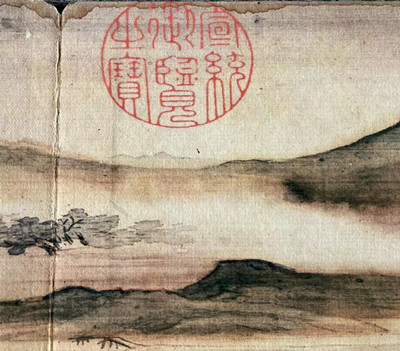 宣統
御覽
之寶